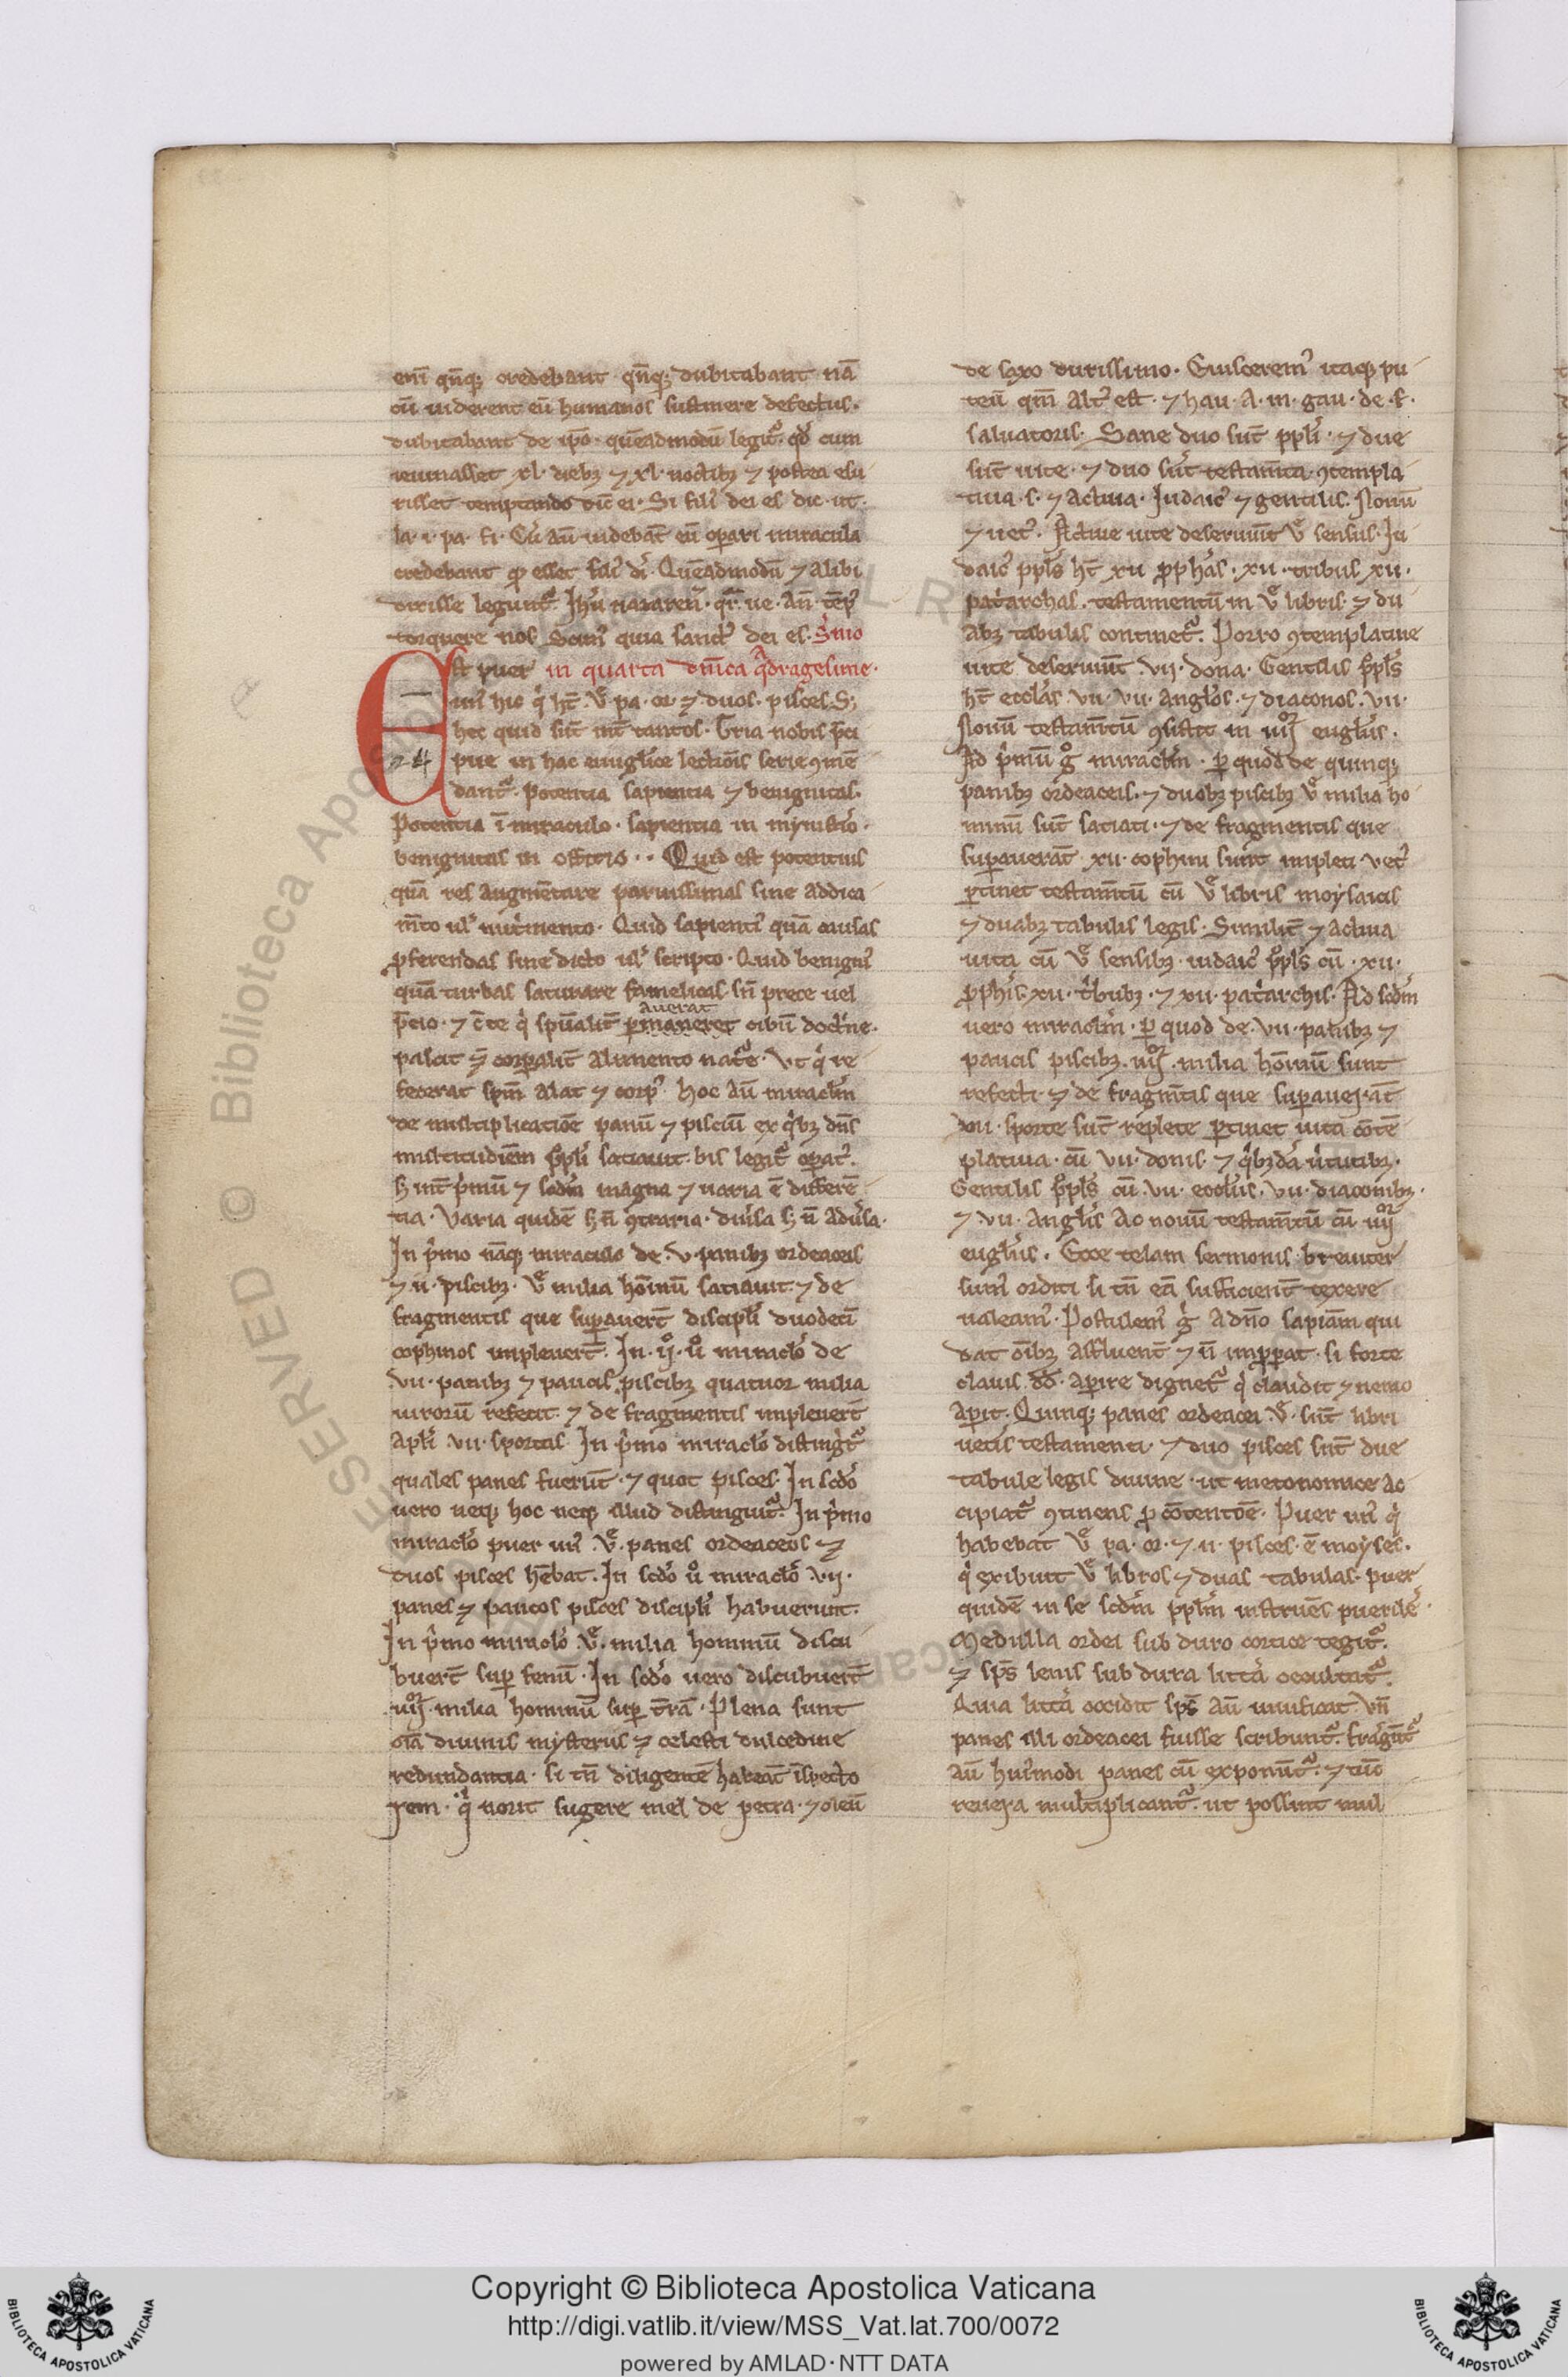 enī qn̄qꝫ credebant qn̄qꝫ dubitabant nā
cū uiderent eū humanos sustinere defectus.
dubitabant de ip̄o. quēadmodū legit᷑. qđ cum
ieiunasset xl. diebꝫ ⁊ xl. noctibꝫ ⁊ postea esu
risset temptando dic̄ ei. Si fili᷒ dei es dic. ut.
la. i. pa. fi. Cū aū uidebāt eū op̄ari miracula
credebant qꝫ esset fili᷒ di᷒. Quēadmodū ⁊ alibi
dixisse legunt᷑. Ihū nazaren᷒. qr̄. ue. an̄. tēp᷒
torquere nos Scim᷒ quia sanct᷒ dei es. S᷒mo
St puer in quarta dn̄ica qᷓdragesime.
un᷒ hic qͥ ht̄. v̊. pa. or ⁊ duos. pisces. S;
hec quid sūt int̄ tantos. Tria nobis p̄ci
24 pue in hac euuglīce lectiōis serie ꝯmē
dant᷑. Potentia sapientia ⁊ benignitas.
Potentia ī miraculo. sapientia in mynist᷒io.
benignitas in officio.. Quid est potentius
quā res augmētare paruissimas sine addita
m̄to ul᷒ nutͥmento. Quid sapienti᷒ quā causas
ꝓferendas sine dicto ul᷒ scripto. Quid benigni᷒
quā turbas saturare famelicas sn̄ prece uel
auerat
p̄cio. ⁊ c̄te qͥ spūalit̄ ꝑmaneret cibū doctͥne.
pascit ⁊ corꝑalit̄ alimento natᷓe. Vt qͥ re
fecerat spm̄ alat ⁊ corp᷒. Hoc aū miracl᷒m
de multiplicatiōe panū ⁊ pisciū ex qͥbꝫ dn̄s
multitudīem p̊pli᷒ satiauit. bis legit᷑ oꝑat᷒.
s; int̄ pͥmū ⁊ scdm᷒ magna ⁊ uaria ē differē
tia. Varia quidē s; n̄ ꝯtraria. diu᷒sa s; n̄ adu᷒sa.
In pͥmo nāqꝫ miraculo de v. panibꝫ ordeaceis
⁊ ii. piscibꝫ. v̊ milia hōīnū satiauit. ⁊ de
fragmentis que suꝑauert̄ discipli᷒ duodecī
cophinos impleuert̄. In. ij̊. ů miracl᷒o de
vii. panibꝫ ⁊ paucis piscibꝫ quatuor milia
uirorū refecit. ⁊ de fragmentis impleuert̄
apl᷒i vii. sportas. In pͥmo miracl᷒o distingͥt᷑
quales panes fuerūt. ⁊ quot pisces. In scdo᷒
uero neqꝫ hoc neqꝫ illud distinguit᷑. In pͥmo
miracl᷒o puer un᷒ v̊. panes ordeaceos ⁊
duos pisces hēbat. In scdo᷒ ů miracl᷒o vii.
panes ⁊ paucos pisces discipli᷒ habuerunt.
In pͥmo miracl᷒o v̊. milia hominū discu
buert̄ suꝑ fenū. In scdo᷒ uero discubuert̄
iiij. milia hominū suꝑ t̄rā. Plena sunt
oīa diuinis mysteriis ⁊ celesti dulcedine
redundantia. si tn̄ diligentē habeāt īspecto
rem. qͥ norit sugere mel de petra. ⁊ oleū
de saxo durissimo. Euisceremᷣ itaqꝫ pu
teū qm̄ alt᷒ est. ⁊ hau. a. in. gau. de. f.
saluatoris. Sane duo sūt ppli᷒. ⁊ due
sūt uite. ⁊ duo sūt testam̄ta. ꝯtempla
tiua. s. ⁊ actiua. Iudaic᷒ ⁊ gentilis. Nouū
⁊ uet᷒. Actiue uite deseruiūt v̊ sensus. Iu
daic᷒ ppls᷒ ht̄ xii ꝓphas᷒. xii. tribus xii.
patͥarchas. testamentū in v̊ libris. ⁊ du
abꝫ tabulis continet᷑. Porro ꝯtemplatiue
uite deseruiūt vii. dona. Gentilis p̊pls᷒
ht̄ eccl᷒as vii. vii. angl᷒os. ⁊ diaconos. vii.
Nouū testam̄tū ꝯsistit in iiij euglͥis.
Ad pͥmū g̊ miracl᷒m. ꝑ quod de quinqꝫ
panibꝫ ordeaceis. ⁊ duobꝫ piscibꝫ v̊ milia ho
minū sūt satiati. ⁊ de fragmentis que
suꝑauerāt. xii. cophini sūnt impleti uet᷒
ꝑtinet testam̄tū cū v̊ libris moysaicis
⁊ duabꝫ tabulis legis. Similit̄ ⁊ actiua
uita cū v̊ sensibꝫ. iudaic᷒ p̊pls᷒ cū. xii.
ꝓphi᷒s. xii. tͥbubꝫ. ⁊ xii. patͥarchis. Ad scdm᷒
uero miracl᷒m. ꝑ quod de. vii. panibꝫ ⁊
paucis piscibꝫ. iiij. milia hōinū sunt
refecti. ⁊ de fragm̄tis que suꝑauerāt
vii. sporte sūt replete ꝑtinet uita cōtē
platiua. cū vii. donis. ⁊ qͥbꝫdā uͥtutibꝫ.
Gentilis p̊pls᷒ cū. vii. eccl᷒is. vii. diaconibꝫ.
⁊ vii. angl᷒is Ac nouū testam̄tū cū iiij
eugl᷒iis. Ecce telam sermonis breuiter
sum᷒ orditi si tn̄ eā sufficient̄ texere
ualeam᷒. Postulem᷒ gͥ a dn̄o sapīam qui
dat oībꝫ affluent̄ ⁊ n̄ imꝓꝑat. si forte
clauis dd̄. aꝑire dignet᷑ qͥ claudit ⁊ nemo
aꝑit. Quinqꝫ panes ordeacei v̊. sūt libri
uet᷒is testamenti. ⁊ duo pisces sūt due
tabule legis diuine. ut metonomice ac
cipiat᷑ ꝯtinens ꝓ cōtentōe. Puer un᷒ qͥ
habebat v̊ pa. or. ⁊ ii. pisces. ē moyses.
qͥ exibuit v̊ libros ⁊ duas tabulas. puer
quidē in se scdm᷒ ppl᷒m instruēs puerile᷒.
Medulla ordei sub duro cortice tegit᷑.
⁊ sps̄ lenis sub dura litt᷒a occultat᷑.
Quia litt᷒a occidit sps̄ aū uiuificat. Vn̄
panes illi ordeacei fuisse scribunt᷑. frāgūt᷑
aū hui᷒modi panes cū exponūt᷑. ⁊ tūc
reuera multiplicant᷑. ut possint mul
Copyright © Biblioteca Apostolica Vaticana
http://digi.vatlib.it/view/MSS_Vat.lat.700/0072
powered by AMLAD·NTT DATA
BIBLIOTECA APOSTOLICA VATICANA
BIBLIOTECA APOSTOLICA VATICANA